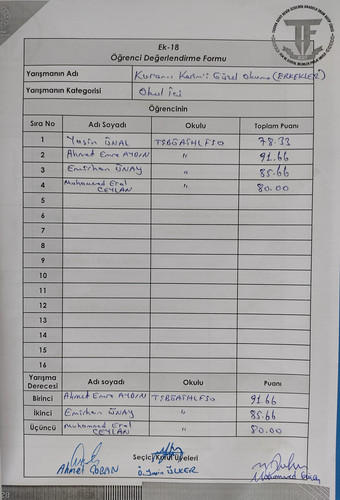 Ek-18
Öğrenci Değerlendirme Formu
Yarışmanın Adı Kuran-ı Kerim'i Güzel Okuma (ERKEKLER)
Yarışmanın Kategorisi Okul İçi
Öğrencinin
Sıra No Adı Soyadı Okulu Toplam Puanı
1 Yasin ÜNAL TSBGASHLFSO 78.33
2 Ahmet Emre AYDIN " 91.66
3 Emirhan ÜNAY " 85.66
4 Muhammed Eral CEYLAN " 80.00
5
6
7
8
9
10
11
12
13
14
15
16
Yarışma Derecesi Adı soyadı Okulu Puanı
Birinci Ahmet Emre AYDIN TSBGASHLFSO 91.66
İkinci Emirhan ÜNAY " 85.66
Üçüncü Muhammed Eral CEYLAN " 80.00
Seçici Kurul Üyeleri
Ahmet ÇOBAN Ö. Yasin ÜLKER Muhammed